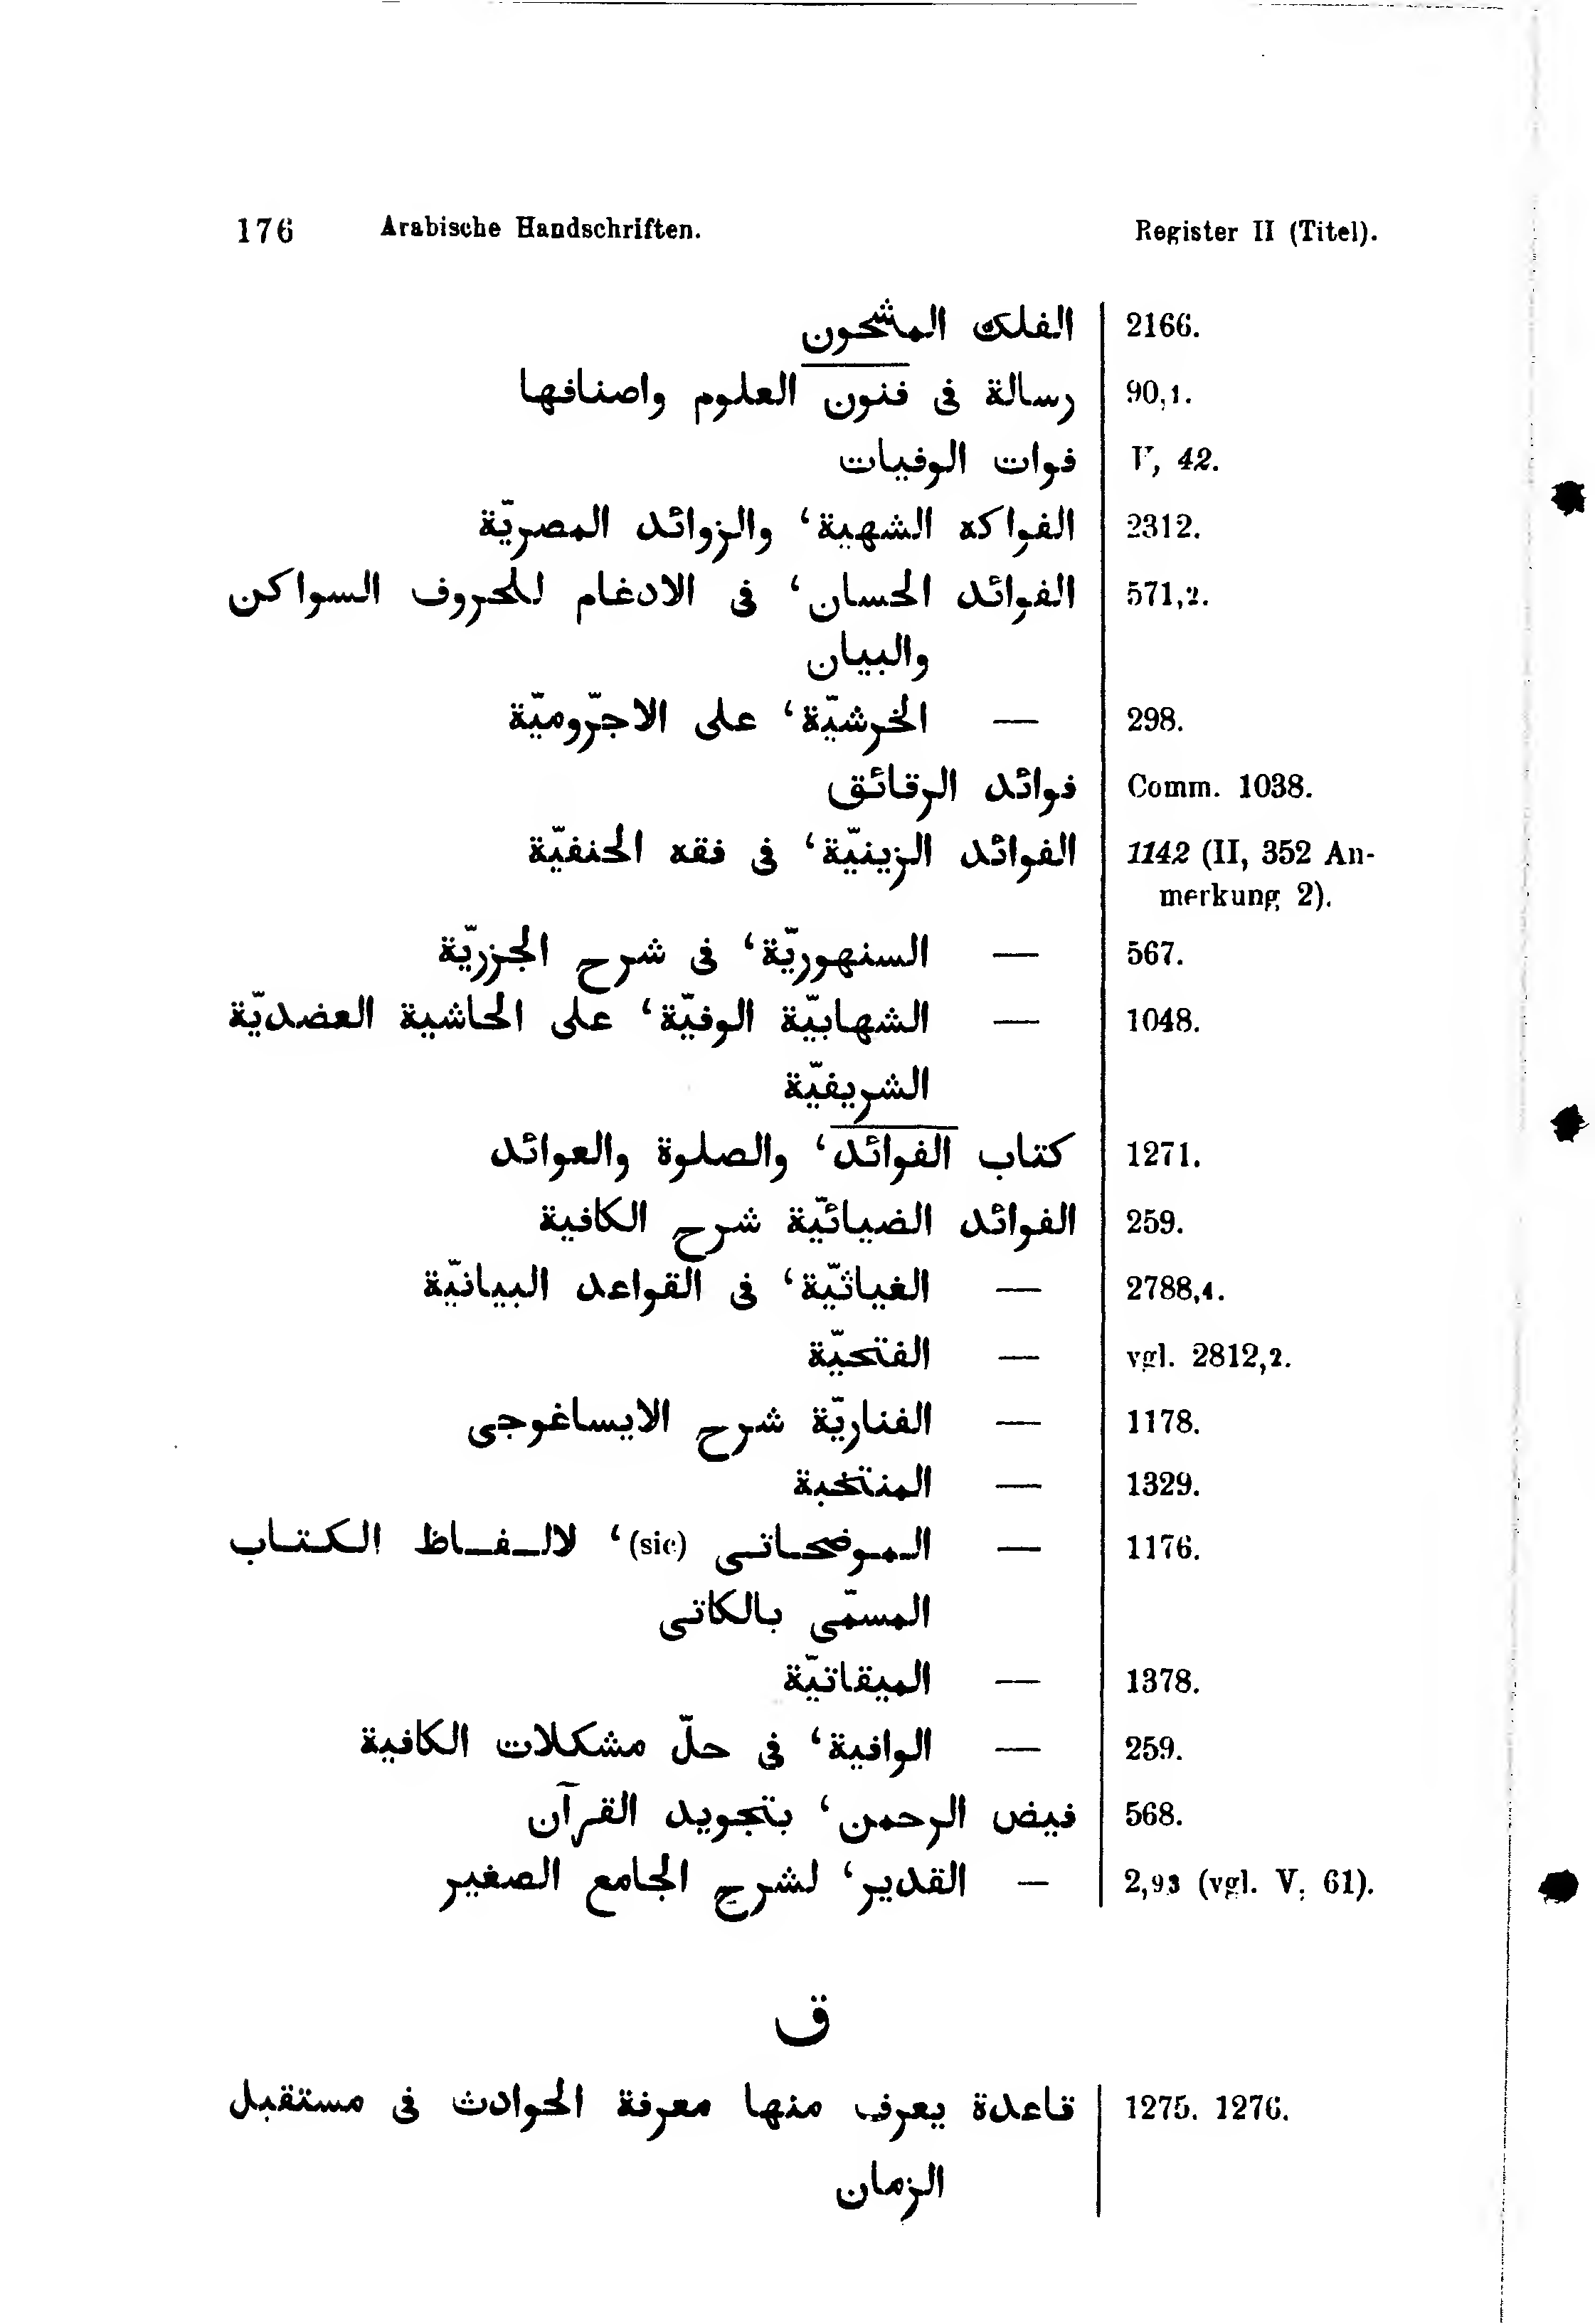 176 Arabische Handschriften. Register II (Titel).
الفلك المشحون 2166.
رسالة فى فنون العلوم واصنافها 90,1.
فوات الوفيات V, 42.
الفواكه الشهية، والزوائد المصريّة 2312.
الفوائد الحسان، فى الادغام للحروف السواكن 571,2.
والبيان
— الخرشيّة، على الاجرّوميّة 298.
فوائد الرقائق Comm. 1038.
الفوائد الزينيّة، فى فقه الحنفيّة 1142 (II, 352 An-
merkung 2).
— السنهوريّة، فى شرح الجزريّة 567.
— الشهابيّة الوفيّة، على الحاشية العضديّة 1048.
الشريفيّة
كتاب الفوائد، والصلوة والعوائد 1271.
الفوائد الضيائيّة شرح الكافية 259.
— الغياثيّة، فى القواعد البيانيّة 2788,4.
— الفتحيّة vgl. 2812,2.
— الفناريّة شرح الايساغوجى 1178.
— المنتخبة 1329.
— الموضحاتى (sic)، لالفاظ الكتاب 1176.
المسمّى بالكاتى
— الميقاتيّة 1378.
— الوافية، فى حلّ مشكلات الكافية 259.
فيض الرحمن، بتجويد القرآن 568.
— القدير، لشرح الجامع الصغير 2,93 (vgl. V, 61).
ق
قاعدة يعرف منها معرفة الحوادث فى مستقبل 1275. 1276.
الزمان